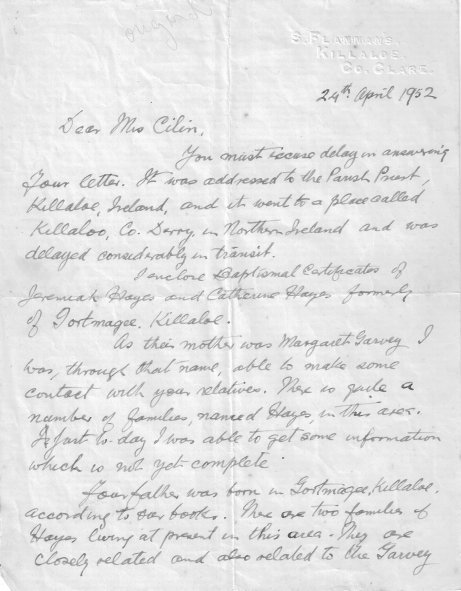 original
S. FLANNAN'S.
KILLALOE.
CO. CLARE.
24th April 1952
Dear Mrs Cilin,
You must excuse delay in answering
your letter. It was addressed to the Parish Priest,
Killaloe, Ireland, and it went to a place called
Killaloo, Co. Derry, in Northern Ireland and was
delayed considerably in transit.
I enclose Baptismal Certificates of
Jeremiah Hayes and Catherine Hayes formerly
of Gortmagee, Killaloe.
As their mother was Margaret Garvey I
was, through that name, able to make some
contact with your relatives. There is quite a
number of families, named Hayes, in this area.
Just to-day I was able to get some information
which is not yet complete.
Your father was born in Gortmagee, Killaloe,
according to our books. There are two families of
Hayes living at present in this area. They are
closely related and also related to the Garvey